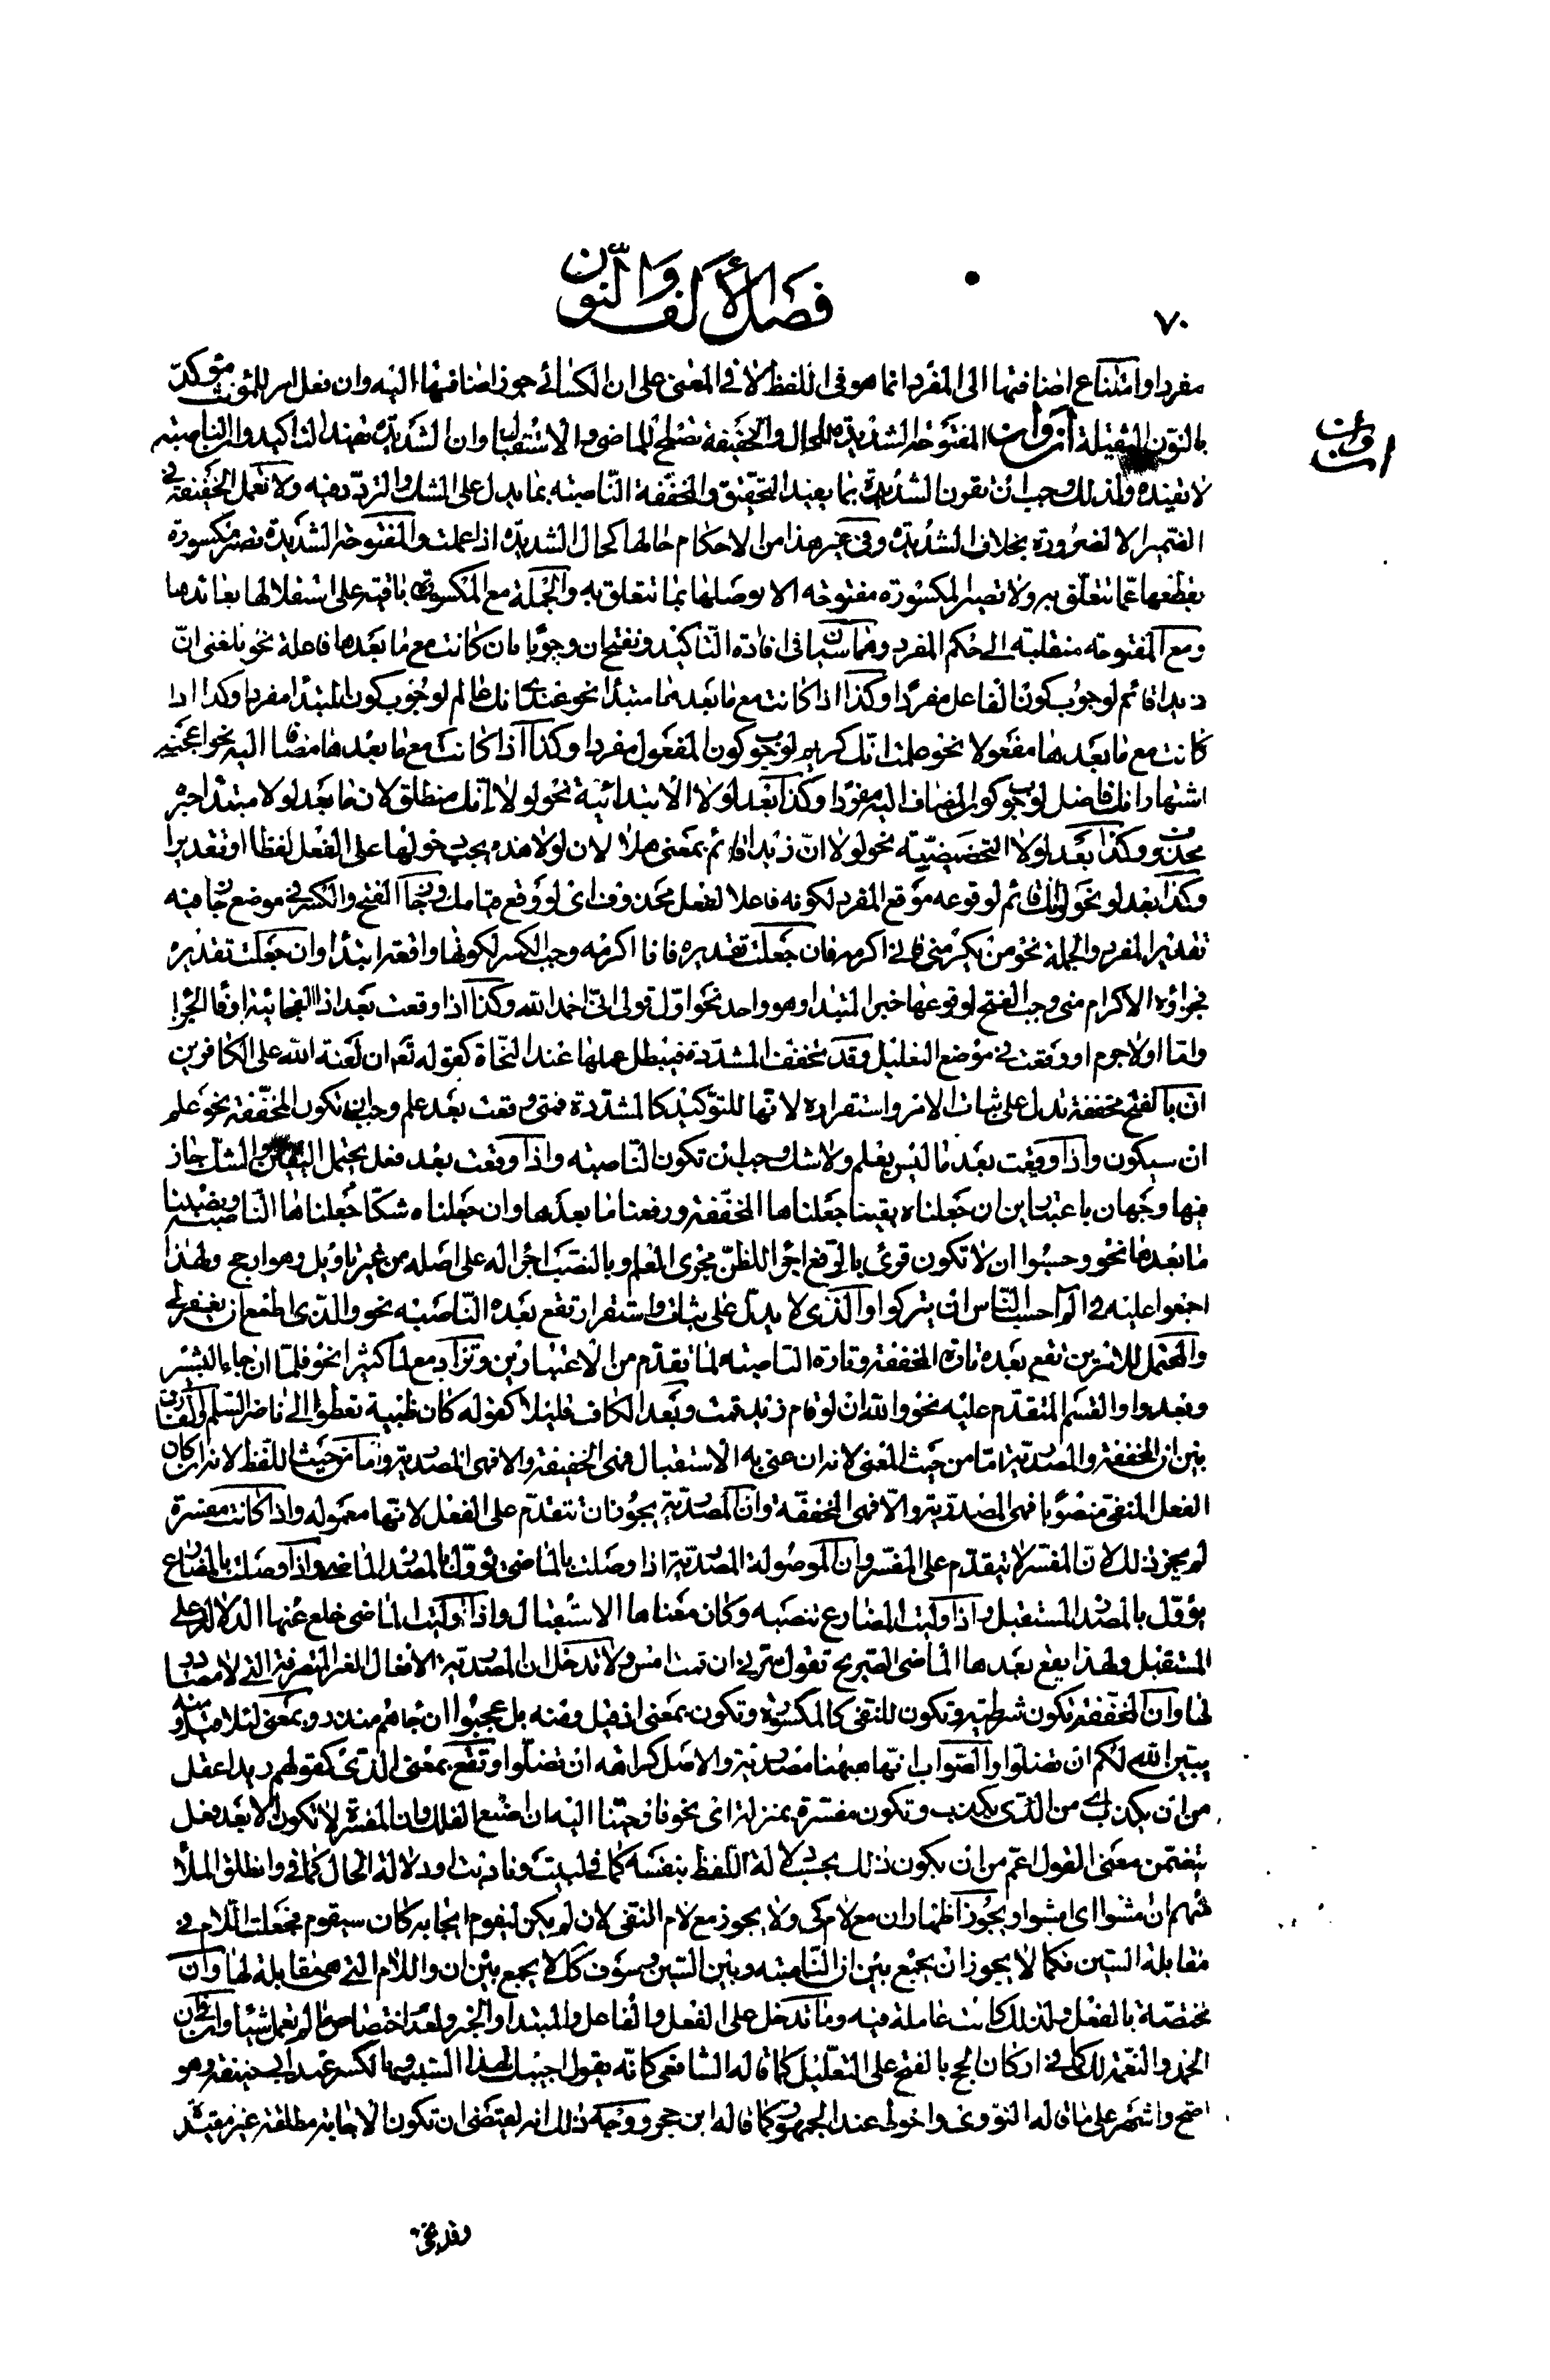 ٧٠
فصل الألف والنون
مفردا وامتناع اضافتها الى المفرد انما هو في اللفظ لا في المعنى على ان الكسائي جوز اضافتها اليه وان فعل امر للمؤنث مؤكد
بالنون الثقيلة أن وإن المفتوحة الشديدة للحال والخفيفة تصلح للماضي والاستقبال وان الشديدة تفيد التأكيد وان الناصبة
ان وان
لا تفيده ولذلك وجب ان تقرن الشديدة بما يفيد التحقيق والمخففة الناصبة بما يدل على الشك والتردد فيه ولا تعمل الخفيفة في
الضمير الا لضرورة بخلاف الشديدة وفي غير هذا من الاحكام حالها كحال الشديدة اذا عملت والمفتوحة الشديدة تصير مكسورة
بقطعها عما تتعلق به ولا تصير المكسورة مفتوحة الا بوصلها بما تتعلق به والجملة مع المكسورة باقية على استقلالها بفائدها
ومع المفتوحة منقلبة الى حكم المفرد وهما سيان في افادة التأكيد وتفتح ان وجوبا ان كانت مع ما بعدها فاعلة نحو بلغني انّ
زيدا قائم لوجوب كون الفاعل مفردا وكذا اذا كانت مع ما بعدها مبتدأ نحو عندي انك عالم لوجوب كون المبتدأ مفردا وكذا اذا
كانت مع ما بعدها مفعولا نحو علمت انك كريم لوجوب كون المفعول مفردا وكذا اذا كانت مع ما بعدها مضافا اليه نحو اعجبني
اشتهار انك فاضل لوجوب كون المضاف اليه مفردا وكذا بعد لولا الابتدائية نحو لولا انك منطلق لان ما بعد لولا مبتدأ خبره
محذوف وكذا بعد لولا التحضيضية نحو لولا انّ زيدا قائم بمعنى هلا لان لولا هذه يجب دخولها على الفعل لفظا او تقديرا
وكذا بعد لو نحو لو انك قائم لوقوعه موقع المفرد لكونه فاعلا لفعل محذوف اى لو وقع قيامك وجاز الفتح والكسر في موضع جاز فيه
تقدير المفرد والجملة نحو من يكرمني فاني اكرمه فان جعلت تقديره فانا اكرمه وجب الكسر لكونها واقعة ابتدأ وان جعلت تقديره
فجزاؤه الاكرام مني وجب الفتح لوقوعها خبر المبتدا وهو واحد نحو اول قولي اني احمد الله وكذا اذا وقعت بعد اذا الفجائية او فا الجزا
واما او لا جرم او وقعت في موضع التعليل وقد تخفف المشددة فيبطل عملها عند النحاة كقوله تعم ان لعنة الله على الكافرين
ان بالفتح مخففة تدل على ثبات الامر واستقراره لانها للتوكيد كالمشددة فمتى وقعت بعد علم وجب ان تكون المخففة نحو علم
ان سيكون واذا وقعت بعد ما ليس بعلم ولا شك وجب ان تكون الناصبة واذا وقعت بعد فعل يحتمل اليقين والشك جاز
فيها وجهان باعتبارين ان جعلناه يقينا جعلناها المخففة ورفعنا ما بعدها وان جعلناه شكا جعلناها الناصبة ونصبنا
ما بعدها نحو وحسبوا ان لا تكون قرئ بالرفع اجراء للظن مجرى العلم وبالنصب اجراء له على اصله من غير تاويل وهو ارجح ولهذا
اجمعوا عليه في الم احسب الناس ان يتركوا والذي لا يدل على ثبات واستقرار تقع بعده الناصبة نحو والذي اطمع ان يغفر لي
والمحتمل للامرين تقع بعده تارة المخففة وتارة الناصبة لما تقدم من الاعتبارين وتزاد مع لما كثيرا نحو فلما ان جاء البشير
وبعد واو القسم المتقدم عليه نحو والله ان لو قام زيد قمت وبعد الكاف قليلا كقوله كان ظبية تعطوا الى ناضر السلم والفارق
بين ان المخففة والمصدرية اما من حيث المعنى لانه ان عنى به الاستقبال فهي الخفيفة والا فهي المصدرية واما من حيث اللفظ لانه ان كان
الفعل المنفي منصوبا فهي المصدرية والا فهي المخففة وان المصدرية يجوز ان تتقدم على الفعل لانها معموله واذا كانت مفسرة
لم يجز ذلك لان المفسر لا يتقدم على المفسر وان الموصولة المصدرية اذا وصلت بالماضي يؤول بالمصدر الماضي واذا وصلت بالمضارع
يؤول بالمصدر المستقبل واذا وليت المضارع تنصبه وكان معناها الاستقبال واذا وليت الماضي خلع عنها الدلالة على
المستقبل ولهذا يقع بعدها الماضي الصريح تقول سرني ان قمت امس ولا تدخل ان المصدرية الافعال الغير المتصرفة التي لا مصادر
لها وان المخففة تكون شرطية وتكون للنفي كالمكسورة وتكون بمعنى اذ قيل ومنه بل عجبوا ان جاءهم منذر وبمعنى لئلا قيل ومنه
يبين الله لكم ان تضلوا والصواب انها ههنا مصدرية والاصل كراهة ان تضلوا وتقع بمعنى الذي كقولهم زيد اعقل
من ان يكذب اى من الذي يكذب وتكون مفسرة بمنزلة اى نحو فاوحينا اليه ان اصنع الفلك وان المفسرة لا تكون الا بعد فعل
يتضمن معنى القول اعم من ان يكون ذلك بحسب دلالة اللفظ بنفسه كما في لبيت وناديت او دلالة الحال كما في وانطلق الملأ
منهم ان امشوا اى امشوا ويجوز اظهار ان مع لام كى ولا يجوز مع لام النفي لان لم يكن ليقوم ايجابه كان سيقوم فجعلت اللام في
مقابلة السين فكما لا يجوز ان يجمع بين ان الناصبة وبين السين وسوف كذا لا يجمع بين ان واللام التي هي مقابلة لها وان
مختصة بالفعل ولذلك كانت عاملة فيه وما تدخل على الفعل والفاعل والمبتدا والخبر ولعدم اختصاصها لم تعمل شيئا وان كان
الحمد والنعمة لك كما في اركان الحج بالفتح على التعليل كما قاله الشافعي كانه يقول اجيبك لهذا السبب وبالكسر عند ابي حنيفة وهو
اصح واشهر على ما قاله النووي واحوط عند الجمهور كما قاله ابن حجر ووجه ذلك انه يقتضي ان تكون الاجابة مطلقة غير مقيدة